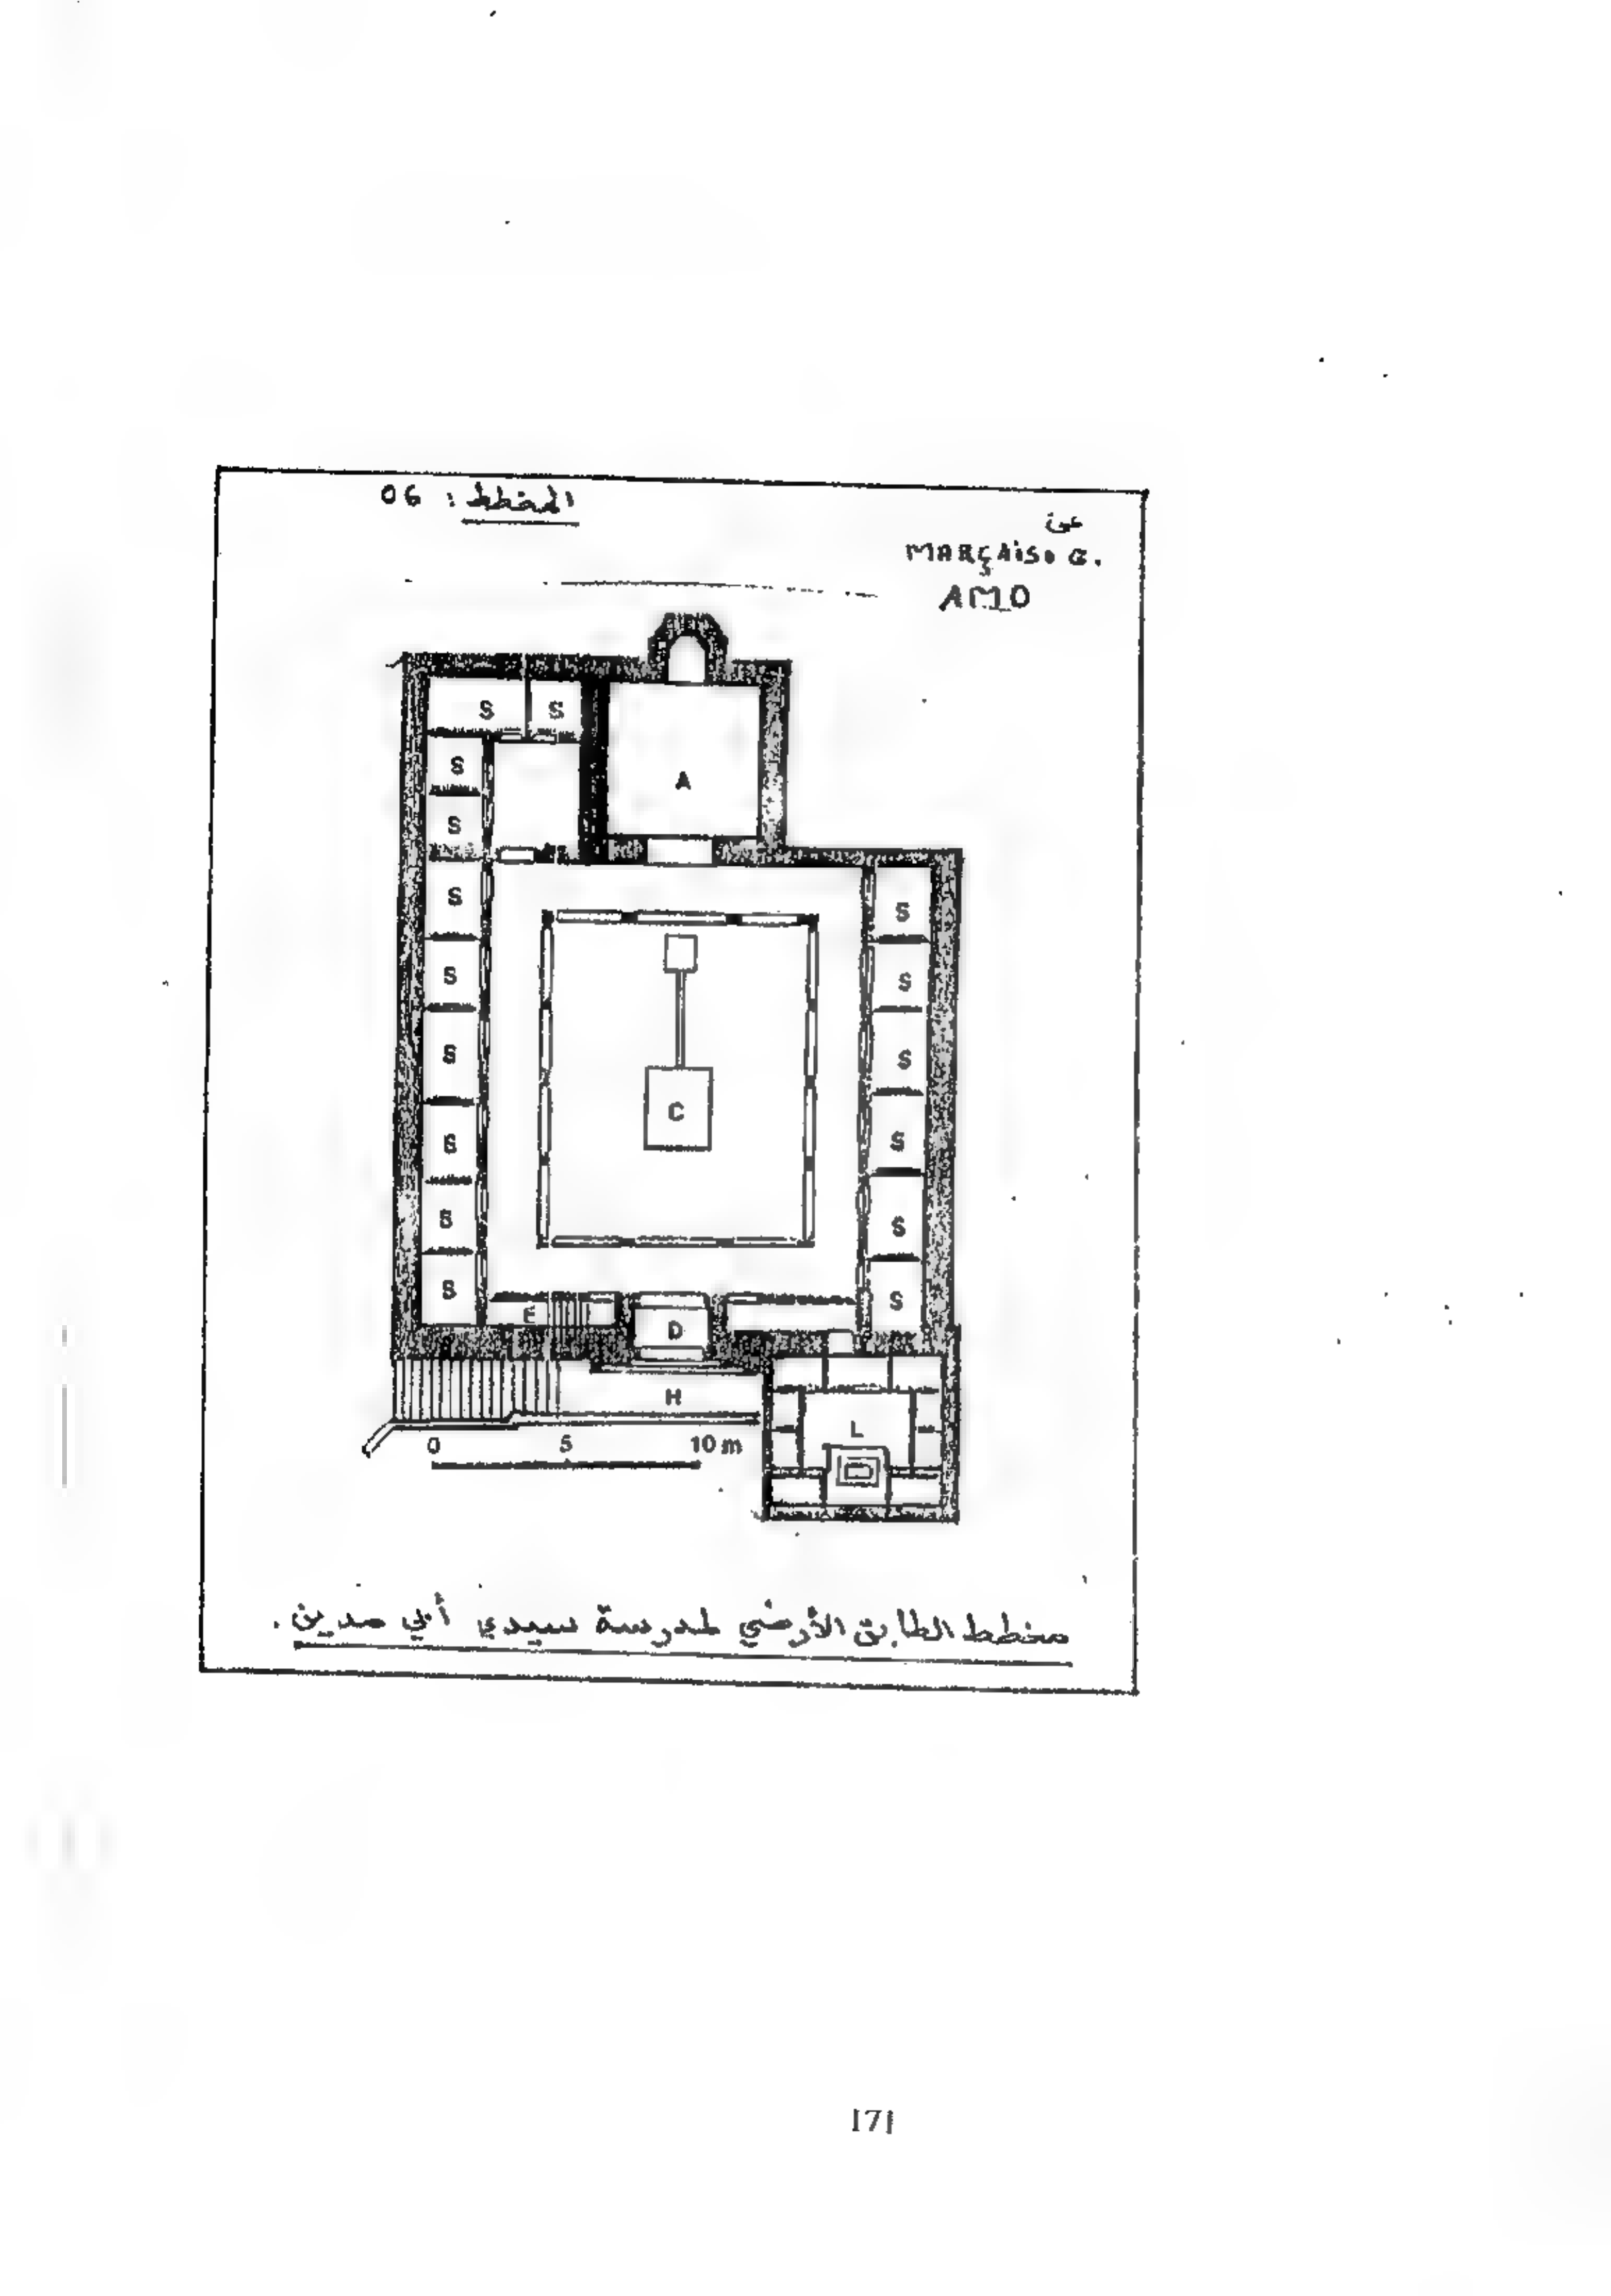 المخطط : 06
عن
MARÇAiS. G.
AMO
S S
S
A
S
S
S
S
S
S
S
C
S
S
S
S
S
S
S
E
D
S
H
L
0 5 10 m
مخطط الطابق الأرضي لمدرسة سيدي أبي مدين .
171